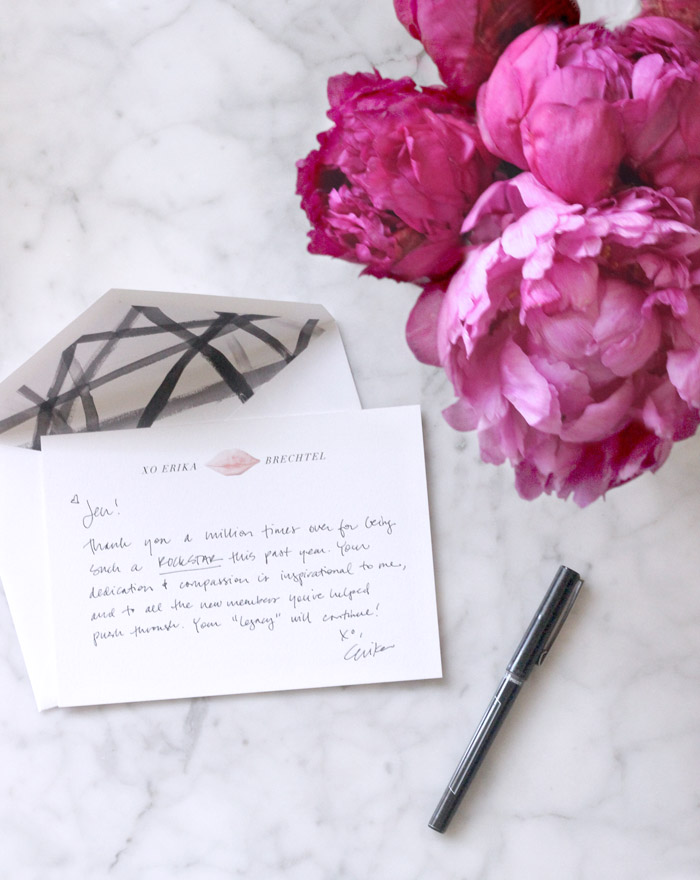 XO ERIKA BRECHTEL
Jen!
Thank you a million times over for being
such a ROCKSTAR this past year. Your
dedication & compassion is inspirational to me,
and to all the new members you've helped
push through. Your "legacy" will continue!
XO,
Erika